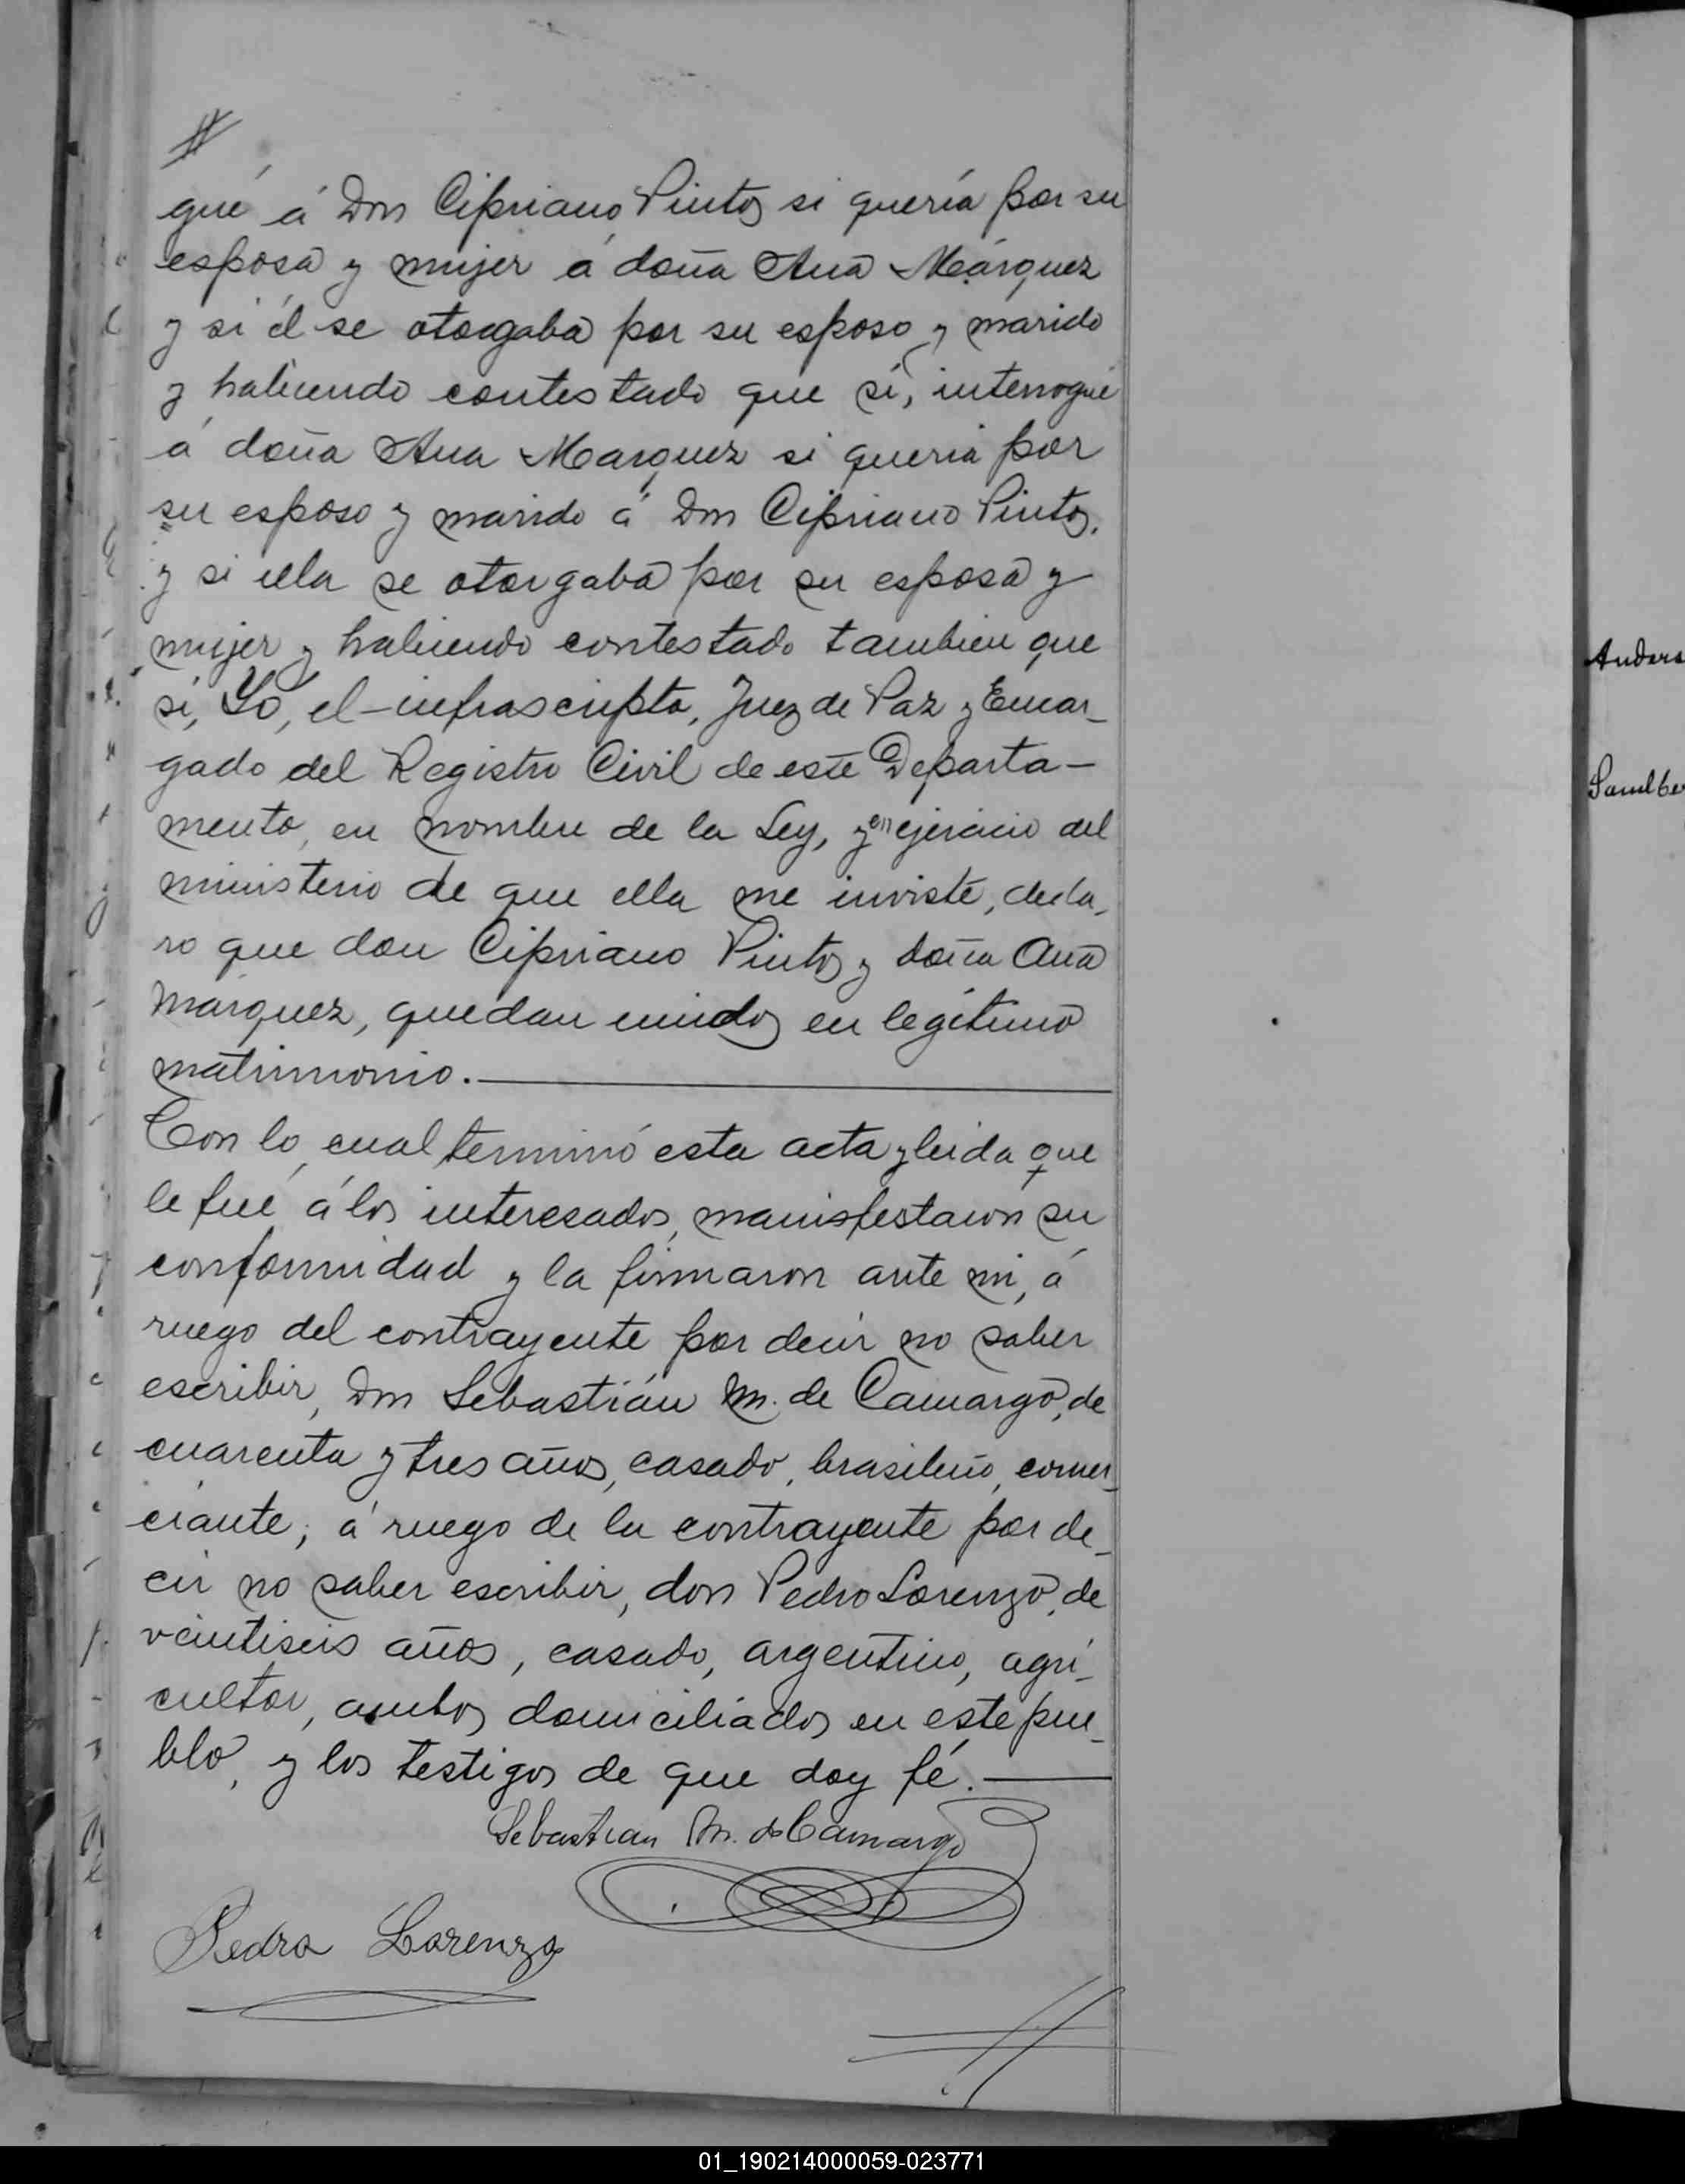 gué á Don Cipriano Pintos si quería por su
esposa y mujer á doña Ana Márquez
y si él se otorgaba por su esposo y marido
y habiendo contestado que sí, interrogué
á doña Ana Marquez si queria por
su esposo y marido á Don Cipriano Pintos,
y si ella se otorgaba por su esposa y
mujer y habiendo contestado tambien que
si, Yo, el infrascripto, Juez de Paz y Encar-
gado del Registro Civil de este Departa-
mento, en nombre de la Ley, y en ejercicio del
ministerio de que ella me inviste, decla-
ro que don Cipriano Pintos y doña Ana
Márquez, quedan unidos en legítimo
matrimonio.
Con lo cual terminó esta acta y leida que
le fué á los interesados, manisfestaron su
conformidad y la firmaron ante mi, á
ruego del contrayente por decir no saber
escribir, Don Sebastián M. de Camargo, de
cuarenta y tres años, casado, brasileño, comer-
ciante; á ruego de la contrayente por de-
cir no saber escribir, don Pedro Lorenzo, de
veintiseis años, casado, argentino, agri-
cultor, ambos domiciliados en este pue-
blo, y los testigos de que doy fé.
Sebastian M. de Camargo
Pedro Lorenzo
01_190214000059-023771